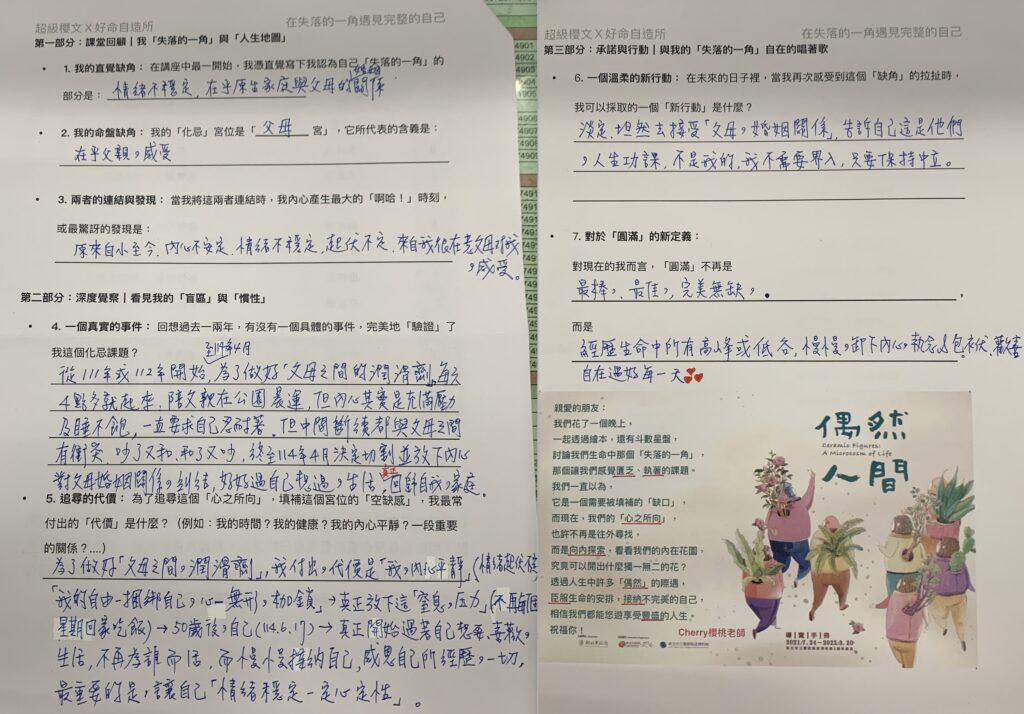 超級櫻文 X 好命自造所
在失落的一角遇見完整的自己
第一部分：課堂回顧 | 我「失落的一角」與「人生地圖」
1. 我的直覺缺角： 在講座中最一開始，我憑直覺寫下我認為自己「失落的一角」的
部分是： 情緒不穩定，在乎原生家庭與父母的婚姻關係
2. 我的命盤缺角： 我的「化忌」宮位是「父母宮」，它所代表的含義是：
在乎父親の感受
3. 兩者的連結與發現： 當我將這兩者連結時，我內心產生最大的「啊哈！」時刻，
或最驚訝的發現是：
原來自小至今、內心不安定、情緒不穩定，起伏不定、來自我很在意父母對我
の感受。
第二部分：深度覺察 | 看見我的「盲區」與「慣性」
4. 一個真實的事件： 回想過去一兩年，有沒有一個具體的事件，完美地「驗證」了
我這個化忌課題？
至114年4月
從111年或112年開始，為了做好「父母之間的潤滑劑」，每天
4點多就起床，陪父親在公園晨運，但內心其實是充滿壓力
及睡不飽，一直要求自己忍耐著。但中間斷續都與父母之間
有衝突、吵了又和、和了又吵，終至114年4月決定切割並放下內心
對父母婚姻關係の糾結，好好過自己想過の生活。真正回歸自我の家庭。
5. 追尋的代價： 為了追尋這個「心之所向」，填補這個宮位的「空缺感」，我最常
付出的「代價」是什麼？（例如：我的時間？我的健康？我的內心平靜？一段重要
的關係？....）
為了做好「父母之間の潤滑劑」，我付出の代價是「我の內心平靜」(情緒起伏
「我的自由-捆綁自己の心-無形の枷鎖」→真正放下這「窒息の压力」(不再每個
星期回家吃飯)→50歲後の自己(114.6.17)→真正開始過著自己想要、喜歡の
生活，不再為誰而活，而慢慢接納自己，感恩自己所經歷の一切，
最重要的是の讓自己「情緒穩定－定心定性」。
超級櫻文 X 好命自造所
在失落的一角遇見完整的自己
第三部分：承諾與行動 | 與我的「失落的一角」自在的唱著歌
6. 一個溫柔的新行動： 在未來的日子裡，當我再次感受到這個「缺角」的拉扯時，
我可以採取的一個「新行動」是什麼？
淡定、坦然去接受「父母の婚姻關係」，告訴自己這是他們
の人生功課，不是我的，我不需要界入，只要保持中立。
7. 對於「圓滿」的新定義：
對現在的我而言，「圓滿」不再是
最棒の、最佳の、完美無缺の。，
而是
經歷生命中所有高山峰或低谷，慢慢の卸下內心の執念&包袱、歡喜
自在過好每一天💕
親愛的朋友：
我們花了一個晚上，
一起透過繪本，還有斗數星盤，
討論我們生命中那個「失落的一角」，
那個讓我們感覺匱乏、執著的課題。
我們一直以為，
它是一個需要被填補的「缺口」，
而現在，我們的「心之所向」，
也許不再是往外尋找，
而是向內探索，看看我們的內在花園，
究竟可以開出什麼獨一無二的花？
透過人生中許多「偶然」的際遇，
臣服生命的安排，接納不完美的自己，
相信我們都能悠遊享受豐盛的人生。
祝福你！
Cherry櫻桃老師
偶然
Ceramic Figures:
A Microcosm of Life
人間
導覽手冊